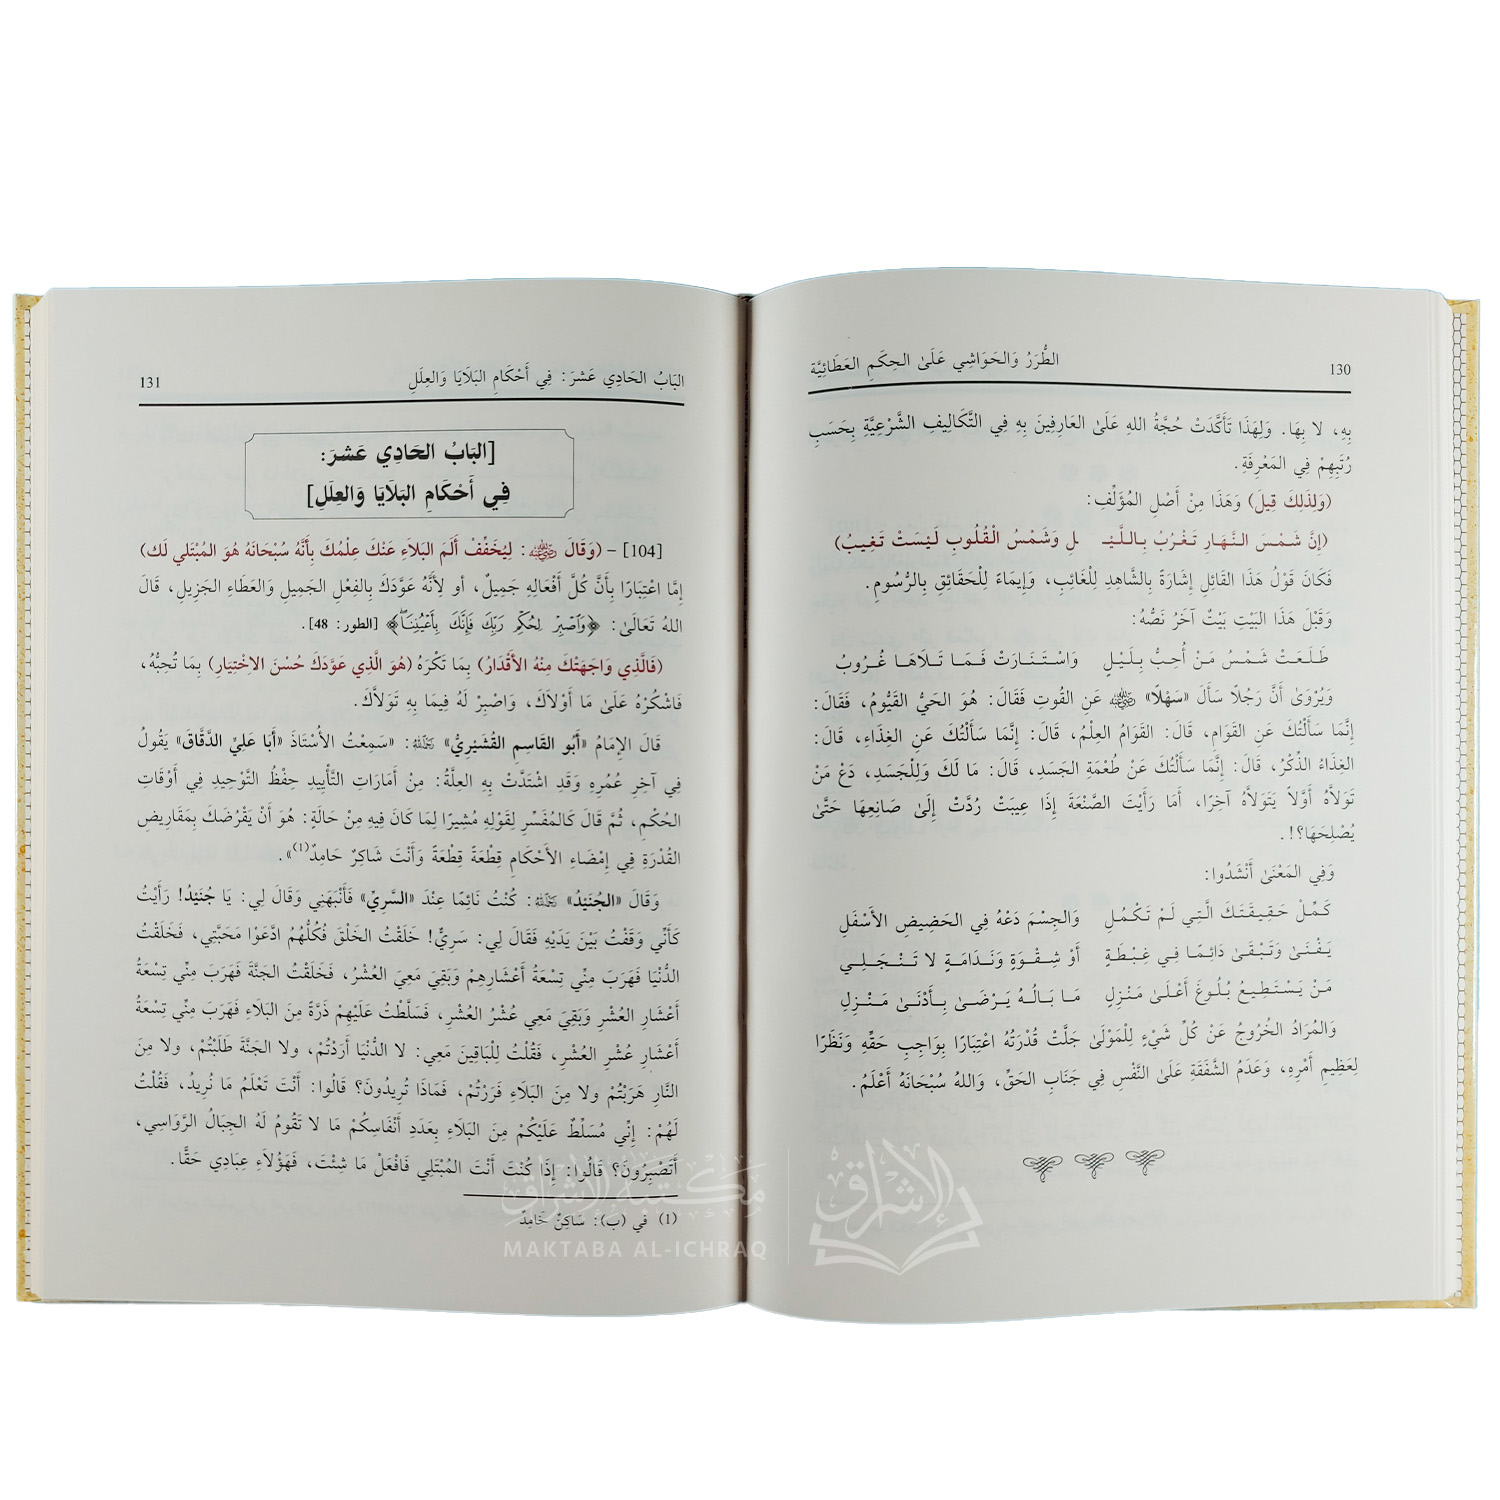 130
الطُّرَرُ وَالحَوَاشِي عَلَىٰ الحِكَمِ العَطَائِيَّة
بِهِ، لا بِهَا. وَلِهَذَا تَأَكَّدَتْ حُجَّةُ اللهِ عَلَىٰ العَارِفِينَ بِهِ فِي التَّكَالِيفِ الشَّرْعِيَّةِ بِحَسَبِ
رُتَبِهِمْ فِي المَعْرِفَةِ.
(وَلذَلكَ قِيلَ) وَهَذَا مِنْ أَصْلِ المُؤَلِّفِ:
(إِنَّ شَمْسَ النَّهَارِ تَغْرُبُ بِاللَّيْـ ـلِ وَشَمْسُ الْقُلُوبِ لَيْسَتْ تَغِيبُ)
فَكَانَ قَوْلُ هَذَا القَائِلِ إِشَارَةً بِالشَّاهِدِ لِلْغَائِبِ، وَإِيمَاءً لِلْحَقَائِقِ بِالرُّسُومِ.
وَقَبْلَ هَذَا البَيْتِ بَيْتٌ آخَرُ نَصُّهُ:
طَلَعَتْ شَمْسُ مَنْ أُحِبُّ بِلَيْلٍ وَاسْتَنَارَتْ فَمَا تَلَاهَا غُرُوبُ
وَيُرْوَىٰ أَنَّ رَجُلًا سَأَلَ «سَهْلًا» ﷺ عَنِ القُوتِ فَقَالَ: هُوَ الحَيُّ القَيُّومُ، فَقَالَ:
إِنَّمَا سَأَلْتُكَ عَنِ القَوَامِ، قَالَ: القَوَامُ العِلْمُ، قَالَ: إِنَّمَا سَأَلْتُكَ عَنِ الغِذَاءِ، قَالَ:
الغِذَاءُ الذِّكْرُ، قَالَ: إِنَّمَا سَأَلْتُكَ عَنْ طُعْمَةِ الجَسَدِ، قَالَ: مَا لَكَ وَلِلْجَسَدِ، دَعْ مَنْ
تَوَلَّاهُ أَوَّلًا يَتَوَلَّاهُ آخِرًا، أَمَا رَأَيْتَ الصَّنْعَةَ إِذَا عِيبَتْ رُدَّتْ إِلَىٰ صَانِعِهَا حَتَّىٰ
يُصْلِحَهَا؟!.
وَفِي المَعْنَىٰ أَنْشَدُوا:
كَمِّلْ حَقِيقَتَكَ الَّتِي لَمْ تَكْمُلِ وَالجِسْمَ دَعْهُ فِي الحَضِيضِ الأَسْفَلِ
يَفْنَىٰ وَتَبْقَىٰ دَائِمًا فِي غِبْطَةٍ أَوْ شِقْوَةٍ وَنَدَامَةٍ لا تَنْجَلِي
مَنْ يَسْتَطِيعُ بُلُوغَ أَعْلَىٰ مَنْزِلٍ مَا بَالُهُ يَرْضَىٰ بِأَدْنَىٰ مَنْزِلِ
وَالمُرَادُ الخُرُوجُ عَنْ كُلِّ شَيْءٍ لِلْمَوْلَىٰ جَلَّتْ قُدْرَتُهُ اعْتِبَارًا بِوَاجِبِ حَقِّهِ وَنَظَرًا
لِعَظِيمِ أَمْرِهِ، وَعَدَمُ الشَّفَقَةِ عَلَىٰ النَّفْسِ فِي جَنَابِ الحَقِّ، وَاللهُ سُبْحَانَهُ أَعْلَمُ.
البَابُ الحَادِي عَشَرَ: فِي أَحْكَامِ البَلَايَا وَالعِلَلِ
131
[البَابُ الحَادِي عَشَرَ:
فِي أَحْكَامِ البَلَايَا وَالعِلَلِ]
[104] - (وَقَالَ ﷺ: لِيُخَفِّفْ أَلَمَ البَلَاءِ عَنْكَ عِلْمُكَ بِأَنَّهُ سُبْحَانَهُ هُوَ المُبْتَلِي لَكَ)
إِمَّا اعْتِبَارًا بِأَنَّ كُلَّ أَفْعَالِهِ جَمِيلٌ، أو لِأَنَّهُ عَوَّدَكَ بِالفِعْلِ الجَمِيلِ وَالعَطَاءِ الجَزِيلِ، قَالَ
اللهُ تَعَالَىٰ: ﴿وَٱصۡبِرۡ لِحُكۡمِ رَبِّكَ فَإِنَّكَ بِأَعۡيُنِنَاۖ﴾ [الطور: 48].
(فَالَّذِي وَاجَهَتْكَ مِنْهُ الأَقْدَارُ) بِمَا تَكْرَهُ (هُوَ الَّذِي عَوَّدَكَ حُسْنَ الاخْتِيَارِ) بِمَا تُحِبُّهُ،
فَاشْكُرْهُ عَلَىٰ مَا أَوْلَاكَ، وَاصْبِرْ لَهُ فِيمَا بِهِ تَوَلَّاكَ.
قَالَ الإِمَامُ «أَبُو القَاسِمِ القُشَيْرِيُّ» رَحِمَهُ اللهُ: «سَمِعْتُ الأُسْتَاذَ «أَبَا عَلِيٍّ الدَّقَّاقَ» يَقُولُ
فِي آخِرِ عُمُرِهِ وَقَدِ اشْتَدَّتْ بِهِ العِلَّةُ: مِنْ أَمَارَاتِ التَّأْيِيدِ حِفْظُ التَّوْحِيدِ فِي أَوْقَاتِ
الحُكْمِ، ثُمَّ قَالَ كَالمُفَسِّرِ لِقَوْلِهِ مُشِيرًا لِمَا كَانَ فِيهِ مِنْ حَالَةٍ: هُوَ أَنْ يَقْرُضَكَ بِمَقَارِيضِ
القُدْرَةِ فِي إِمْضَاءِ الأَحْكَامِ قِطْعَةً قِطْعَةً وَأَنْتَ شَاكِرٌ حَامِدٌ(1)».
وَقَالَ «الجُنَيْدُ» رَحِمَهُ اللهُ: كُنْتُ نَائِمًا عِنْدَ «السَّرِيِّ» فَأَنْبَهَنِي وَقَالَ لِي: يَا جُنَيْدُ! رَأَيْتُ
كَأَنِّي وَقَفْتُ بَيْنَ يَدَيْهِ فَقَالَ لِي: سَرِيُّ! خَلَقْتُ الخَلْقَ فَكُلُّهُمُ ادَّعَوْا مَحَبَّتِي، فَخَلَقْتُ
الدُّنْيَا فَهَرَبَ مِنِّي تِسْعَةُ أَعْشَارِهِمْ وَبَقِيَ مَعِيَ العُشْرُ، فَخَلَقْتُ الجَنَّةَ فَهَرَبَ مِنِّي تِسْعَةُ
أَعْشَارِ العُشْرِ وَبَقِيَ مَعِي عُشْرُ العُشْرِ، فَسَلَّطْتُ عَلَيْهِمْ ذَرَّةً مِنَ البَلَاءِ فَهَرَبَ مِنِّي تِسْعَةُ
أَعْشَارِ عُشْرِ العُشْرِ، فَقُلْتُ لِلْبَاقِينَ مَعِي: لا الدُّنْيَا أَرَدْتُمْ، ولا الجَنَّةَ طَلَبْتُمْ، ولا مِنَ
النَّارِ هَرَبْتُمْ ولا مِنَ البَلَاءِ فَرَرْتُمْ، فَمَاذَا تُرِيدُونَ؟ قَالُوا: أَنْتَ تَعْلَمُ مَا نُرِيدُ، فَقُلْتُ
لَهُمْ: إِنِّي مُسَلِّطٌ عَلَيْكُمْ مِنَ البَلَاءِ بِعَدَدِ أَنْفَاسِكُمْ مَا لا تَقُومُ لَهُ الجِبَالُ الرَّوَاسِي،
أَتَصْبِرُونَ؟ قَالُوا: إِذَا كُنْتَ أَنْتَ المُبْتَلِي فَافْعَلْ مَا شِئْتَ، فَهَؤُلَاءِ عِبَادِي حَقًّا.
(1) في (ب): سَاكِنٌ خَامِدٌ
مكتبة الإشراق
MAKTABA AL-ICHRAQ
الإشراق